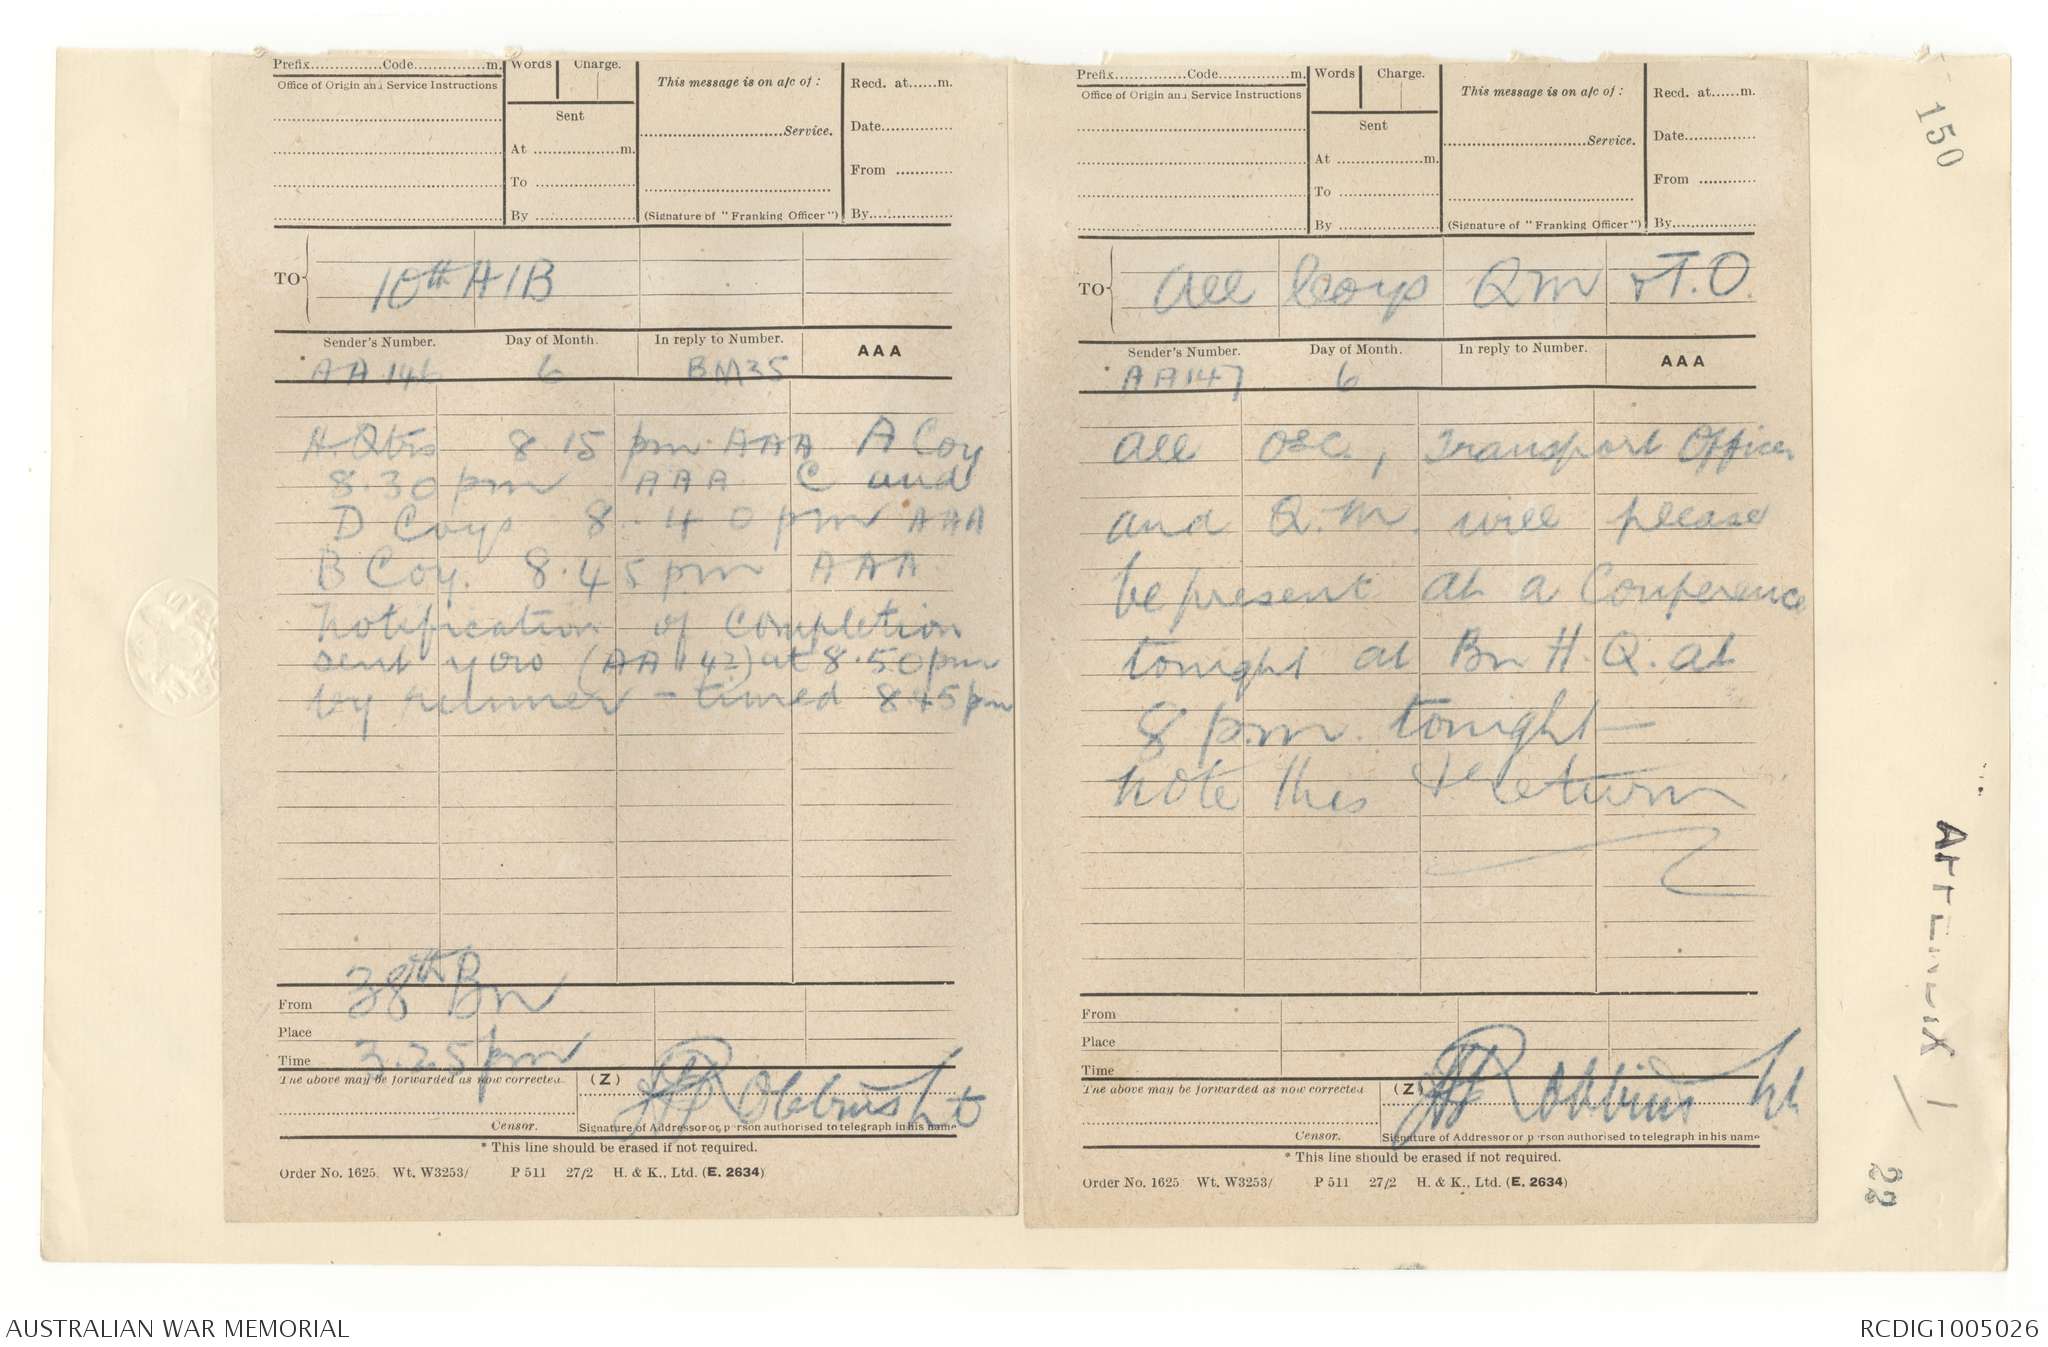 Prefix.............Code..............m.
Words
Charge.
This message is on a/c of :
Recd. at......m.
Office of Origin and Service Instructions
Sent
.........................Service.
Date.............
At ................m.
From ..........
To ..................
By ..................
(Signature of "Franking Officer")
By................
TO
10th A I B
Sender's Number.
Day of Month.
In reply to Number.
AAA
AA 146
6
BM35
H.Qtrs 8.15 pm. AAA A Coy
8.30 pm AAA C and
D Coys 8.40 pm AAA
B Coy. 8.45 pm AAA
Notification of Completion
sent you (AA 142) at 8.50 pm
by runner - timed 8.45 pm
From
38th Bn
Place
Time
3.25 pm
The above may be forwarded as now corrected.
(Z)
Censor.
Signature of Addressor or person authorised to telegraph in his name
* This line should be erased if not required.
Order No. 1625. Wt. W3253/ P 511 27/2 H. & K., Ltd. (E. 2634)
Prefix.............Code..............m.
Words
Charge.
This message is on a/c of :
Recd. at......m.
Office of Origin and Service Instructions
Sent
.........................Service.
Date.............
At ................m.
From ..........
To ..................
By ..................
(Signature of "Franking Officer")
By................
TO
All Coys QM & T.O.
Sender's Number.
Day of Month.
In reply to Number.
AAA
AA147
6
All OsC., Transport Officer
and Q.M. will please
be present at a Conference
tonight at Bn H.Q. at
8 p.m. tonight -
Note this & return
From
Place
Time
The above may be forwarded as now corrected
(Z)
Censor.
Signature of Addressor or person authorised to telegraph in his name
* This line should be erased if not required.
Order No. 1625 Wt. W3253/ P 511 27/2 H. & K., Ltd. (E. 2634)
150
APPENDIX 1
22
AUSTRALIAN WAR MEMORIAL
RCDIG1005026